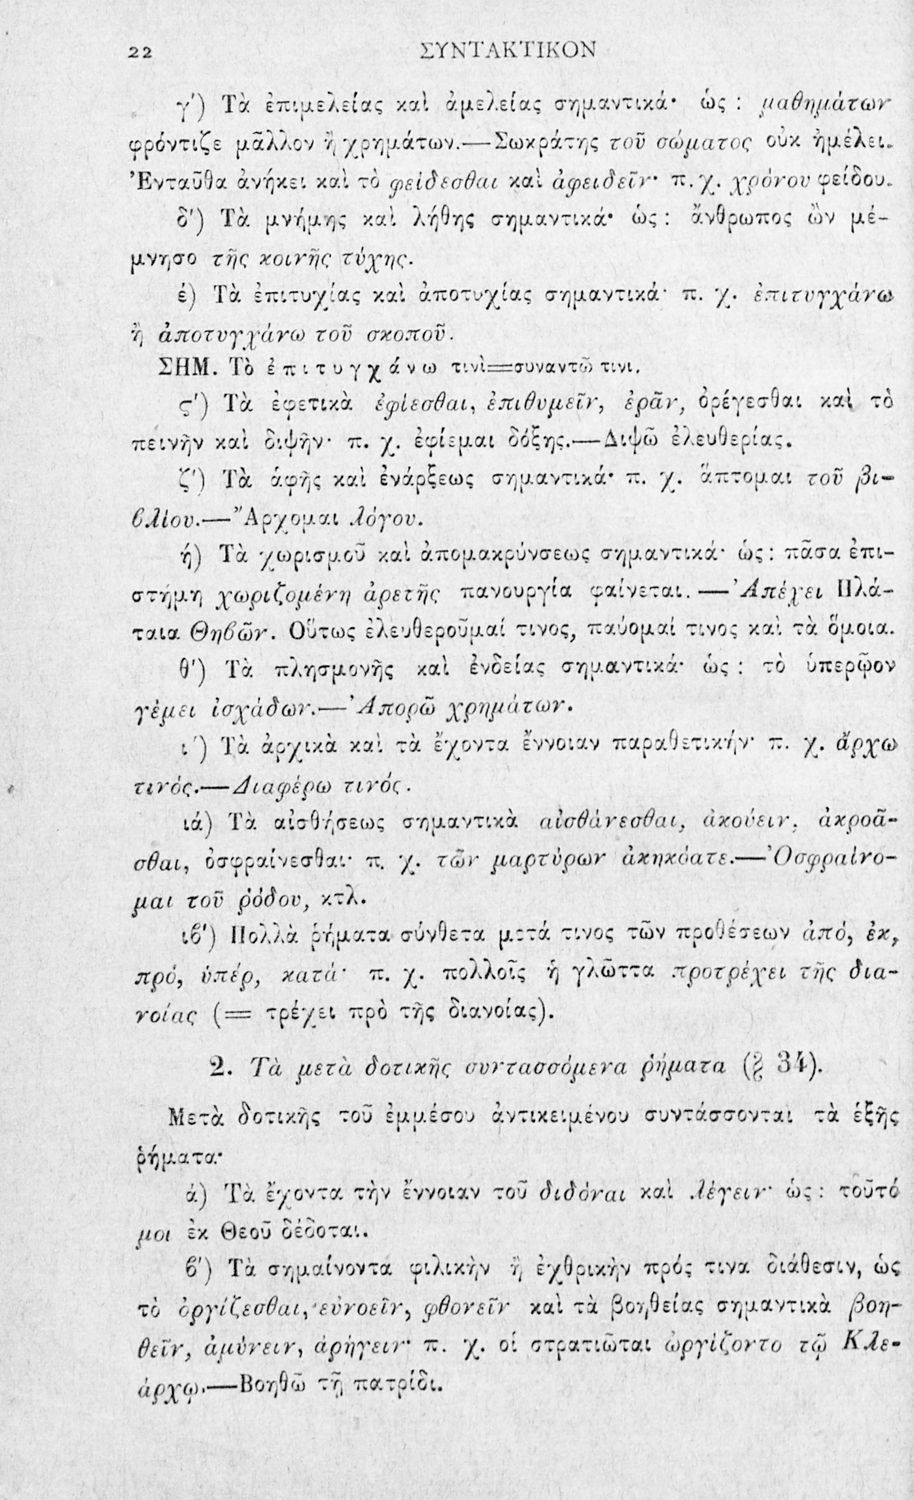 22 ΣΥΝΤΑΚΤΙΚΟΝ
γ′) Τὰ ἐπιμελείας καὶ ἀμελείας σημαντικά· ὡς : μαθημάτων
φρόντιζε μᾶλλον ἢ χρημάτων.—Σωκράτης τοῦ σώματος οὐκ ἠμέλει.
Ἐνταῦθα ἀνήκει καὶ τὸ φείδεσθαι καὶ ἀφειδεῖν· π.χ. χρόνου φείδου.
δ′) Τὰ μνήμης καὶ λήθης σημαντικά· ὡς : ἄνθρωπος ὢν μέ-
μνησο τῆς κοινῆς τύχης.
έ) Τὰ ἐπιτυχίας καὶ ἀποτυχίας σημαντικά· π. χ. ἐπιτυγχάνω
ἢ ἀποτυγχάνω τοῦ σκοποῦ.
ΣΗΜ. Τὸ ἐπιτυγχάνω τινὶ=συναντῶ τινι.
ϛ′) Τὰ ἐφετικὰ ἐφίεσθαι, ἐπιθυμεῖν, ἐρᾶν, ὀρέγεσθαι καὶ τὸ
πεινῆν καὶ διψῆν· π. χ. ἐφίεμαι δόξης.—Διψῶ ἐλευθερίας.
ζ′) Τὰ ἁφῆς καὶ ἐνάρξεως σημαντικά· π. χ. ἅπτομαι τοῦ βι-
βλίου.—Ἄρχομαι λόγου.
ή) Τὰ χωρισμοῦ καὶ ἀπομακρύνσεως σημαντικά· ὡς: πᾶσα ἐπι-
στήμη χωριζομένη ἀρετῆς πανουργία φαίνεται.—Ἀπέχει Πλά-
ταια Θηβῶν. Οὕτως ἐλευθεροῦμαί τινος, παύομαί τινος καὶ τὰ ὅμοια.
θ′) Τὰ πλησμονῆς καὶ ἐνδείας σημαντικά· ὡς : τὸ ὑπερῷον
γέμει ἰσχάδων.—Ἀπορῶ χρημάτων.
ι′) Τὰ ἀρχικὰ καὶ τὰ ἔχοντα ἔννοιαν παραθετικήν· π. χ. ἄρχω
τινός.—Διαφέρω τινός.
ιά) Τὰ αἰσθήσεως σημαντικὰ αἰσθάνεσθαι, ἀκούειν, ἀκροᾶ-
σθαι, ὀσφραίνεσθαι· π. χ. τῶν μαρτύρων ἀκηκόατε.—Ὀσφραίνο-
μαι τοῦ ῥόδου, κτλ.
ιβ′) Πολλὰ ῥήματα σύνθετα μετά τινος τῶν προθέσεων ἀπό, ἐκ,
πρό, ὑπέρ, κατά· π. χ. πολλοῖς ἡ γλῶττα προτρέχει τῆς δια-
νοίας (= τρέχει πρὸ τῆς διανοίας).
2. Τὰ μετὰ δοτικῆς συντασσόμενα ῥήματα (§ 34).
Μετὰ δοτικῆς τοῦ ἐμμέσου ἀντικειμένου συντάσσονται τὰ ἑξῆς
ῥήματα·
ά) Τὰ ἔχοντα τὴν ἔννοιαν τοῦ διδόναι καὶ λέγειν· ὡς : τοῦτό
μοι ἐκ Θεοῦ δέδοται.
β′) Τὰ σημαίνοντα φιλικὴν ἢ ἐχθρικὴν πρός τινα διάθεσιν, ὡς
τὸ ὀργίζεσθαι, εὐνοεῖν, φθονεῖν καὶ τὰ βοηθείας σημαντικὰ βοη-
θεῖν, ἀμύνειν, ἀρήγειν· π. χ. οἱ στρατιῶται ὠργίζοντο τῷ Κλε-
άρχῳ.—Βοηθῶ τῇ πατρίδι.